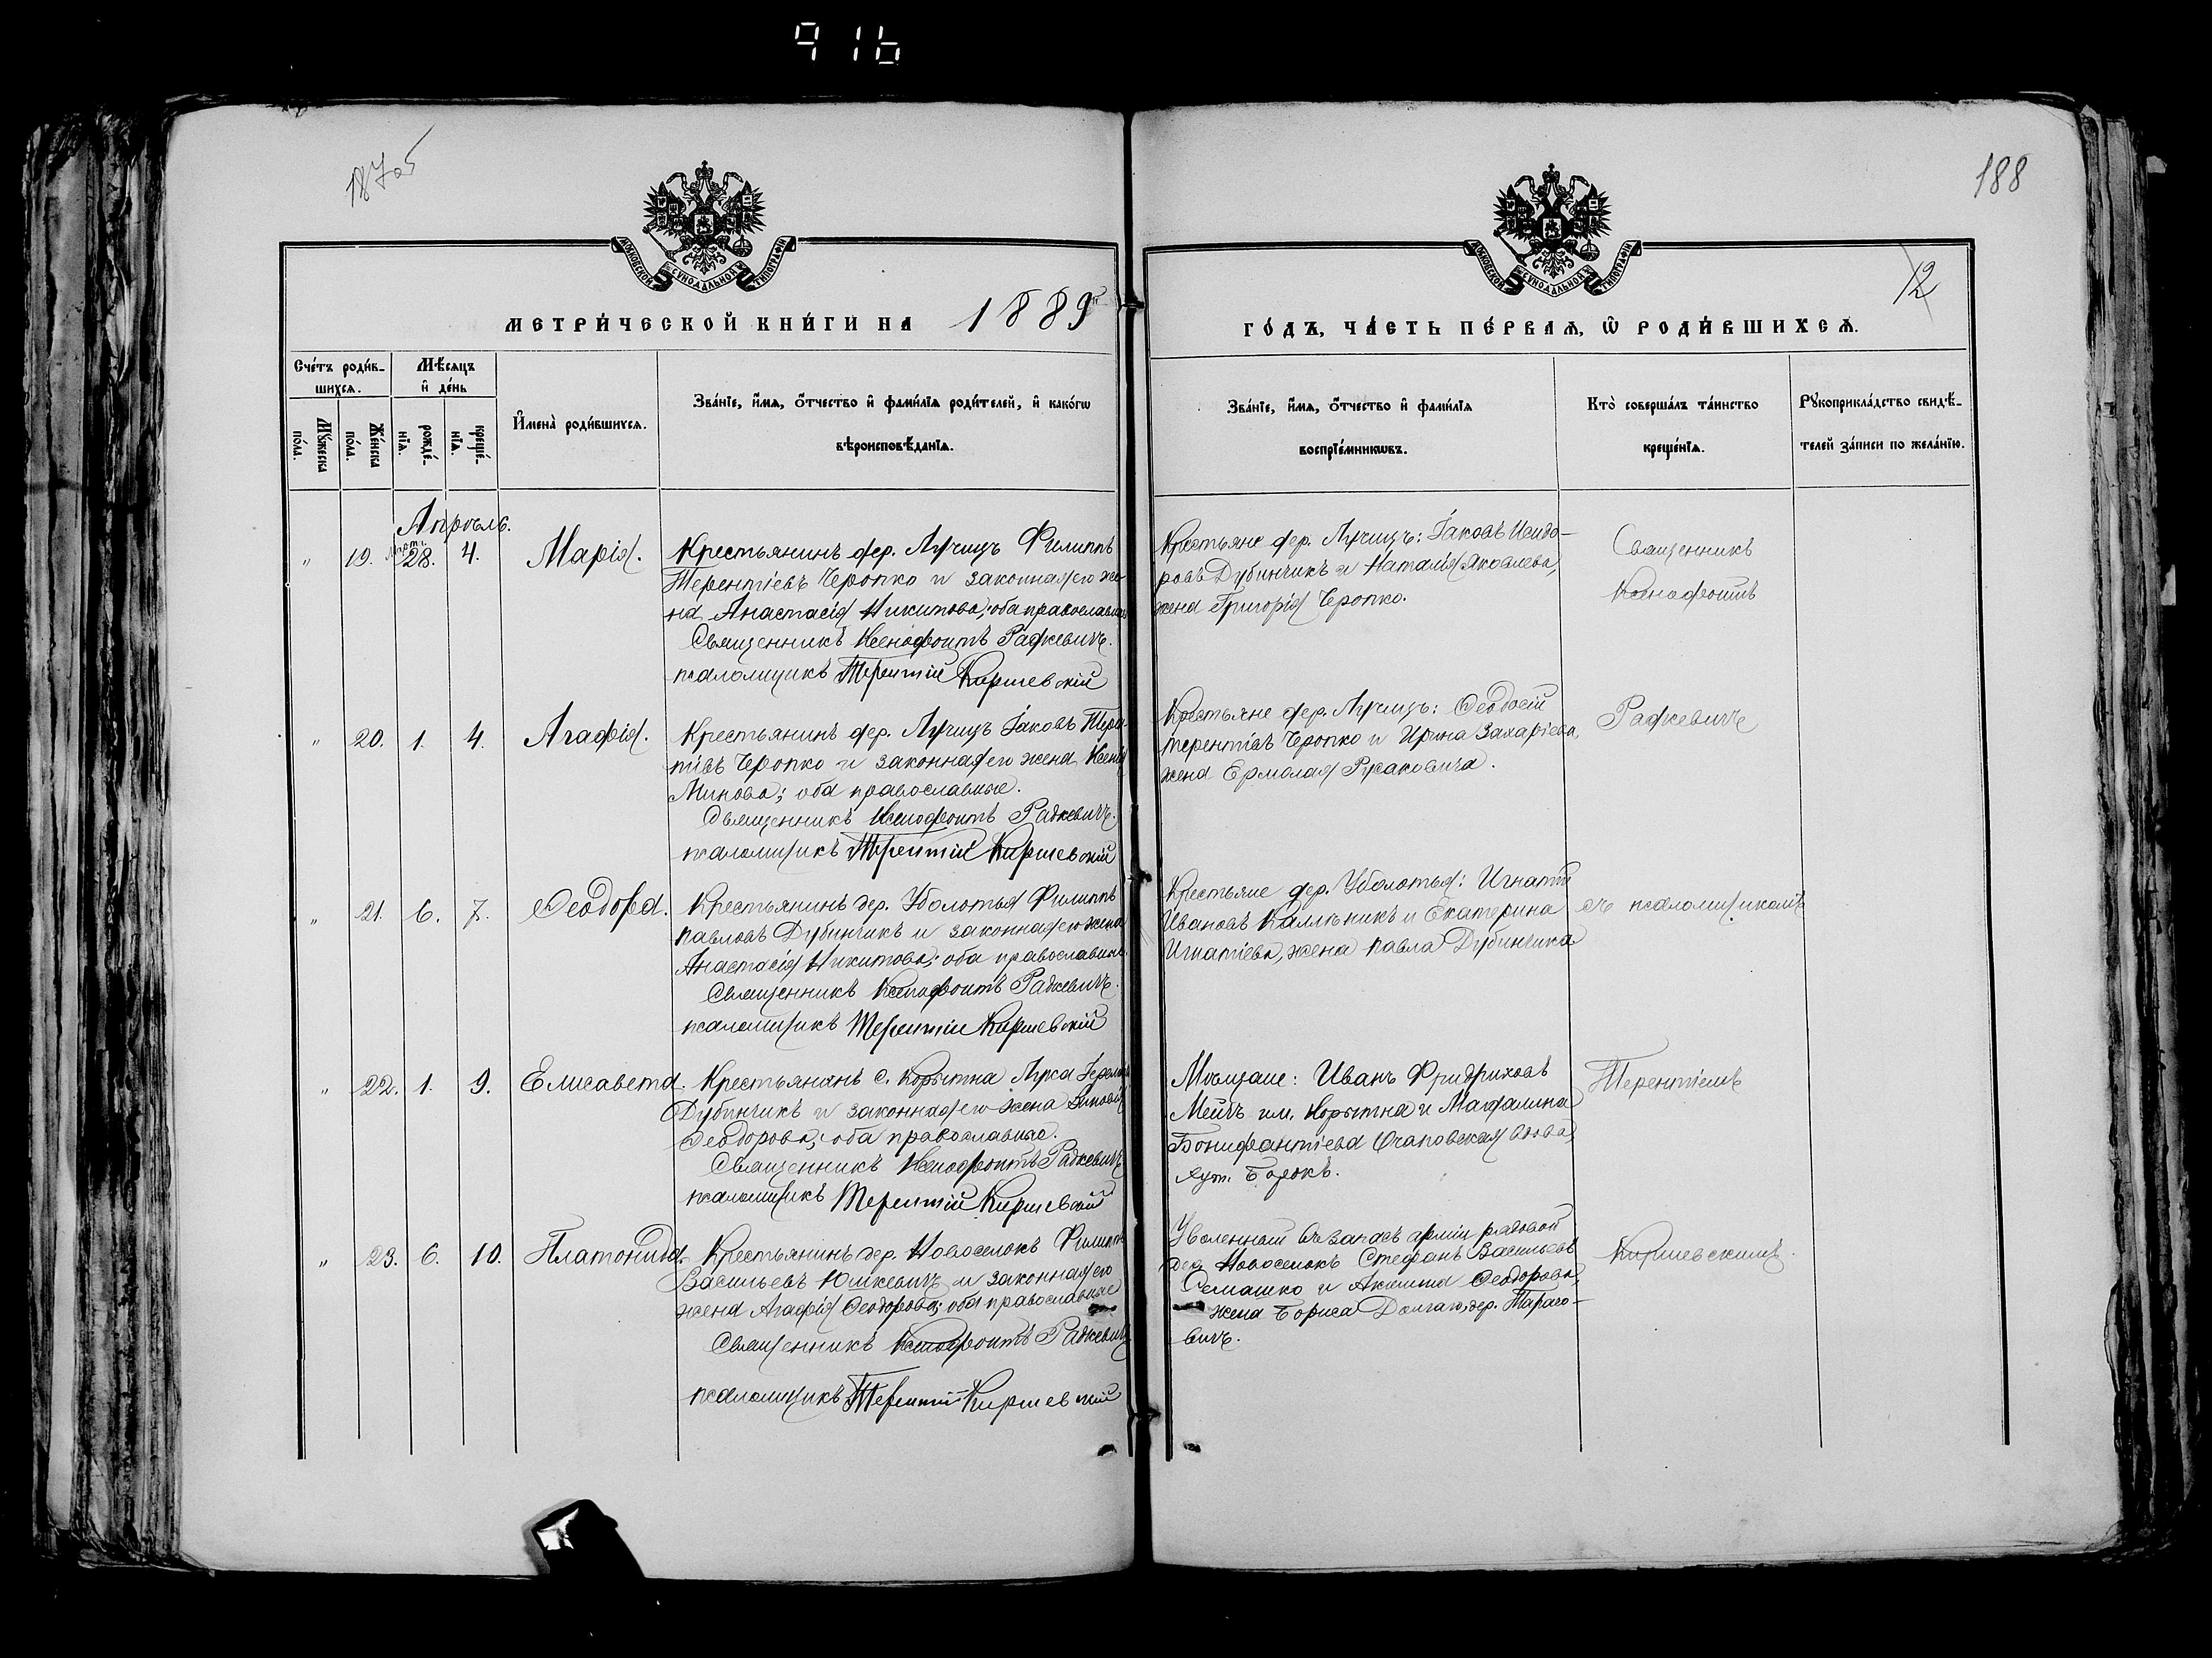 916
187об
188
12
МОСКОВСКОЙ СѴНОДАЛЬНОЙ ТИПОГРАФІИ
МОСКОВСКОЙ СѴНОДАЛЬНОЙ ТИПОГРАФІИ
МЕТРИ́ЧЕСКОЙ КНИ́ГИ НА 1889
ГО́ДЪ, ЧА́СТЬ ПЕ́РВАѦ, Ѿ РОДИ́ВШИХСѦ.
Сче́тъ роди́в-
шихсѧ.
Мѣ́сѧцъ
и҆ де́нь
Мꙋ́жеска
по́ла.
Же́нска
по́ла.
рожде́-
нїѧ.
креще́-
нїѧ.
И҆мена̀ роди́вшихсѧ.
Зва́нїе, и҆́мѧ, ѻ҆́тчество и҆ фамѝлїѧ роди́телей, и҆ како́гѡ
вѣроисповѣ́данїѧ.
Зва́нїе, и҆́мѧ, ѻ҆́тчество и҆ фами́лїѧ
воспрїе́мникѡвъ.
Кто̀ соверша́лъ та́инство
креще́нїѧ.
Рꙋкоприкла́дство свидѣ́-
телей за́писи по жела́нїю.
Апрѣль.
" 19. Март. 28. 4. Марія.
Крестьянинъ дер. Лучицъ Филиппъ
Терентіевъ Черопко и законная его же-
на Анастасія Никитова; оба православные
Священникъ Ксенофонтъ Радкевичъ.
псаломщикъ Терентій Киршевскій
Крестьяне дер. Лучицъ: Іаковъ Исидо-
ровъ Дубинчикъ и Наталія Яковлева,
жена Григорія Черопко.
Священникъ
Ксенофонтъ
" 20. 1. 4. Агафія.
Крестьянинъ дер. Лучицъ Іаковъ Терен-
тіевъ Черопко и законная его жена Ксенія
Минова; оба православные.
Священникъ Ксенофонтъ Радкевичъ.
псаломщикъ Терентій Киршевскій
Крестьяне дер. Лучицъ: Ѳеодосій
Терентіевъ Черопко и Ирина Захаріева,
жена Ермолая Русаковича.
Радкевичъ
" 21. 6. 7. Ѳеодора.
Крестьянинъ дер. Уболотья Филиппъ
Павловъ Дубинчикъ и законная его жена
Анастасія Никитова; оба православные.
Священникъ Ксенофонтъ Радкевичъ.
псаломщикъ Терентій Киршевскій
Крестьяне дер. Уболотья: Игнатій
Ивановъ и Екатерина
Игнатіева, жена Павла Дубинчика
съ псаломщикомъ
" 22. 1. 9. Елисавета.
Крестьянинъ с. Корытна Лука
Дубинчикъ и законная его жена Зиновія
Ѳеодорова; оба православные.
Священникъ Ксенофонтъ Радкевичъ
псаломщикъ Терентій Киршевскій
Мѣщане: Иванъ Фридриховъ
им. Корытна и Магдалина
Бонифантіева Очаповская вдова,
хут. Борокъ.
Терентіемъ
" 23. 6. 10. Платонида.
Крестьянинъ дер. Новоселокъ Филиппъ
Васильевъ Юшкевичъ и законная его
жена Агафія Ѳеодорова; оба православные
Священникъ Ксенофонтъ Радкевичъ
псаломщикъ Терентій Киршевскій
Уволенный въ запасъ арміи рядовой
дер. Новоселокъ Стефанъ Васильевъ
Семашко и Акилина Ѳеодорова,
жена Бориса Долгаго, дер. Тараго-
вичъ.
Киршевскимъ.